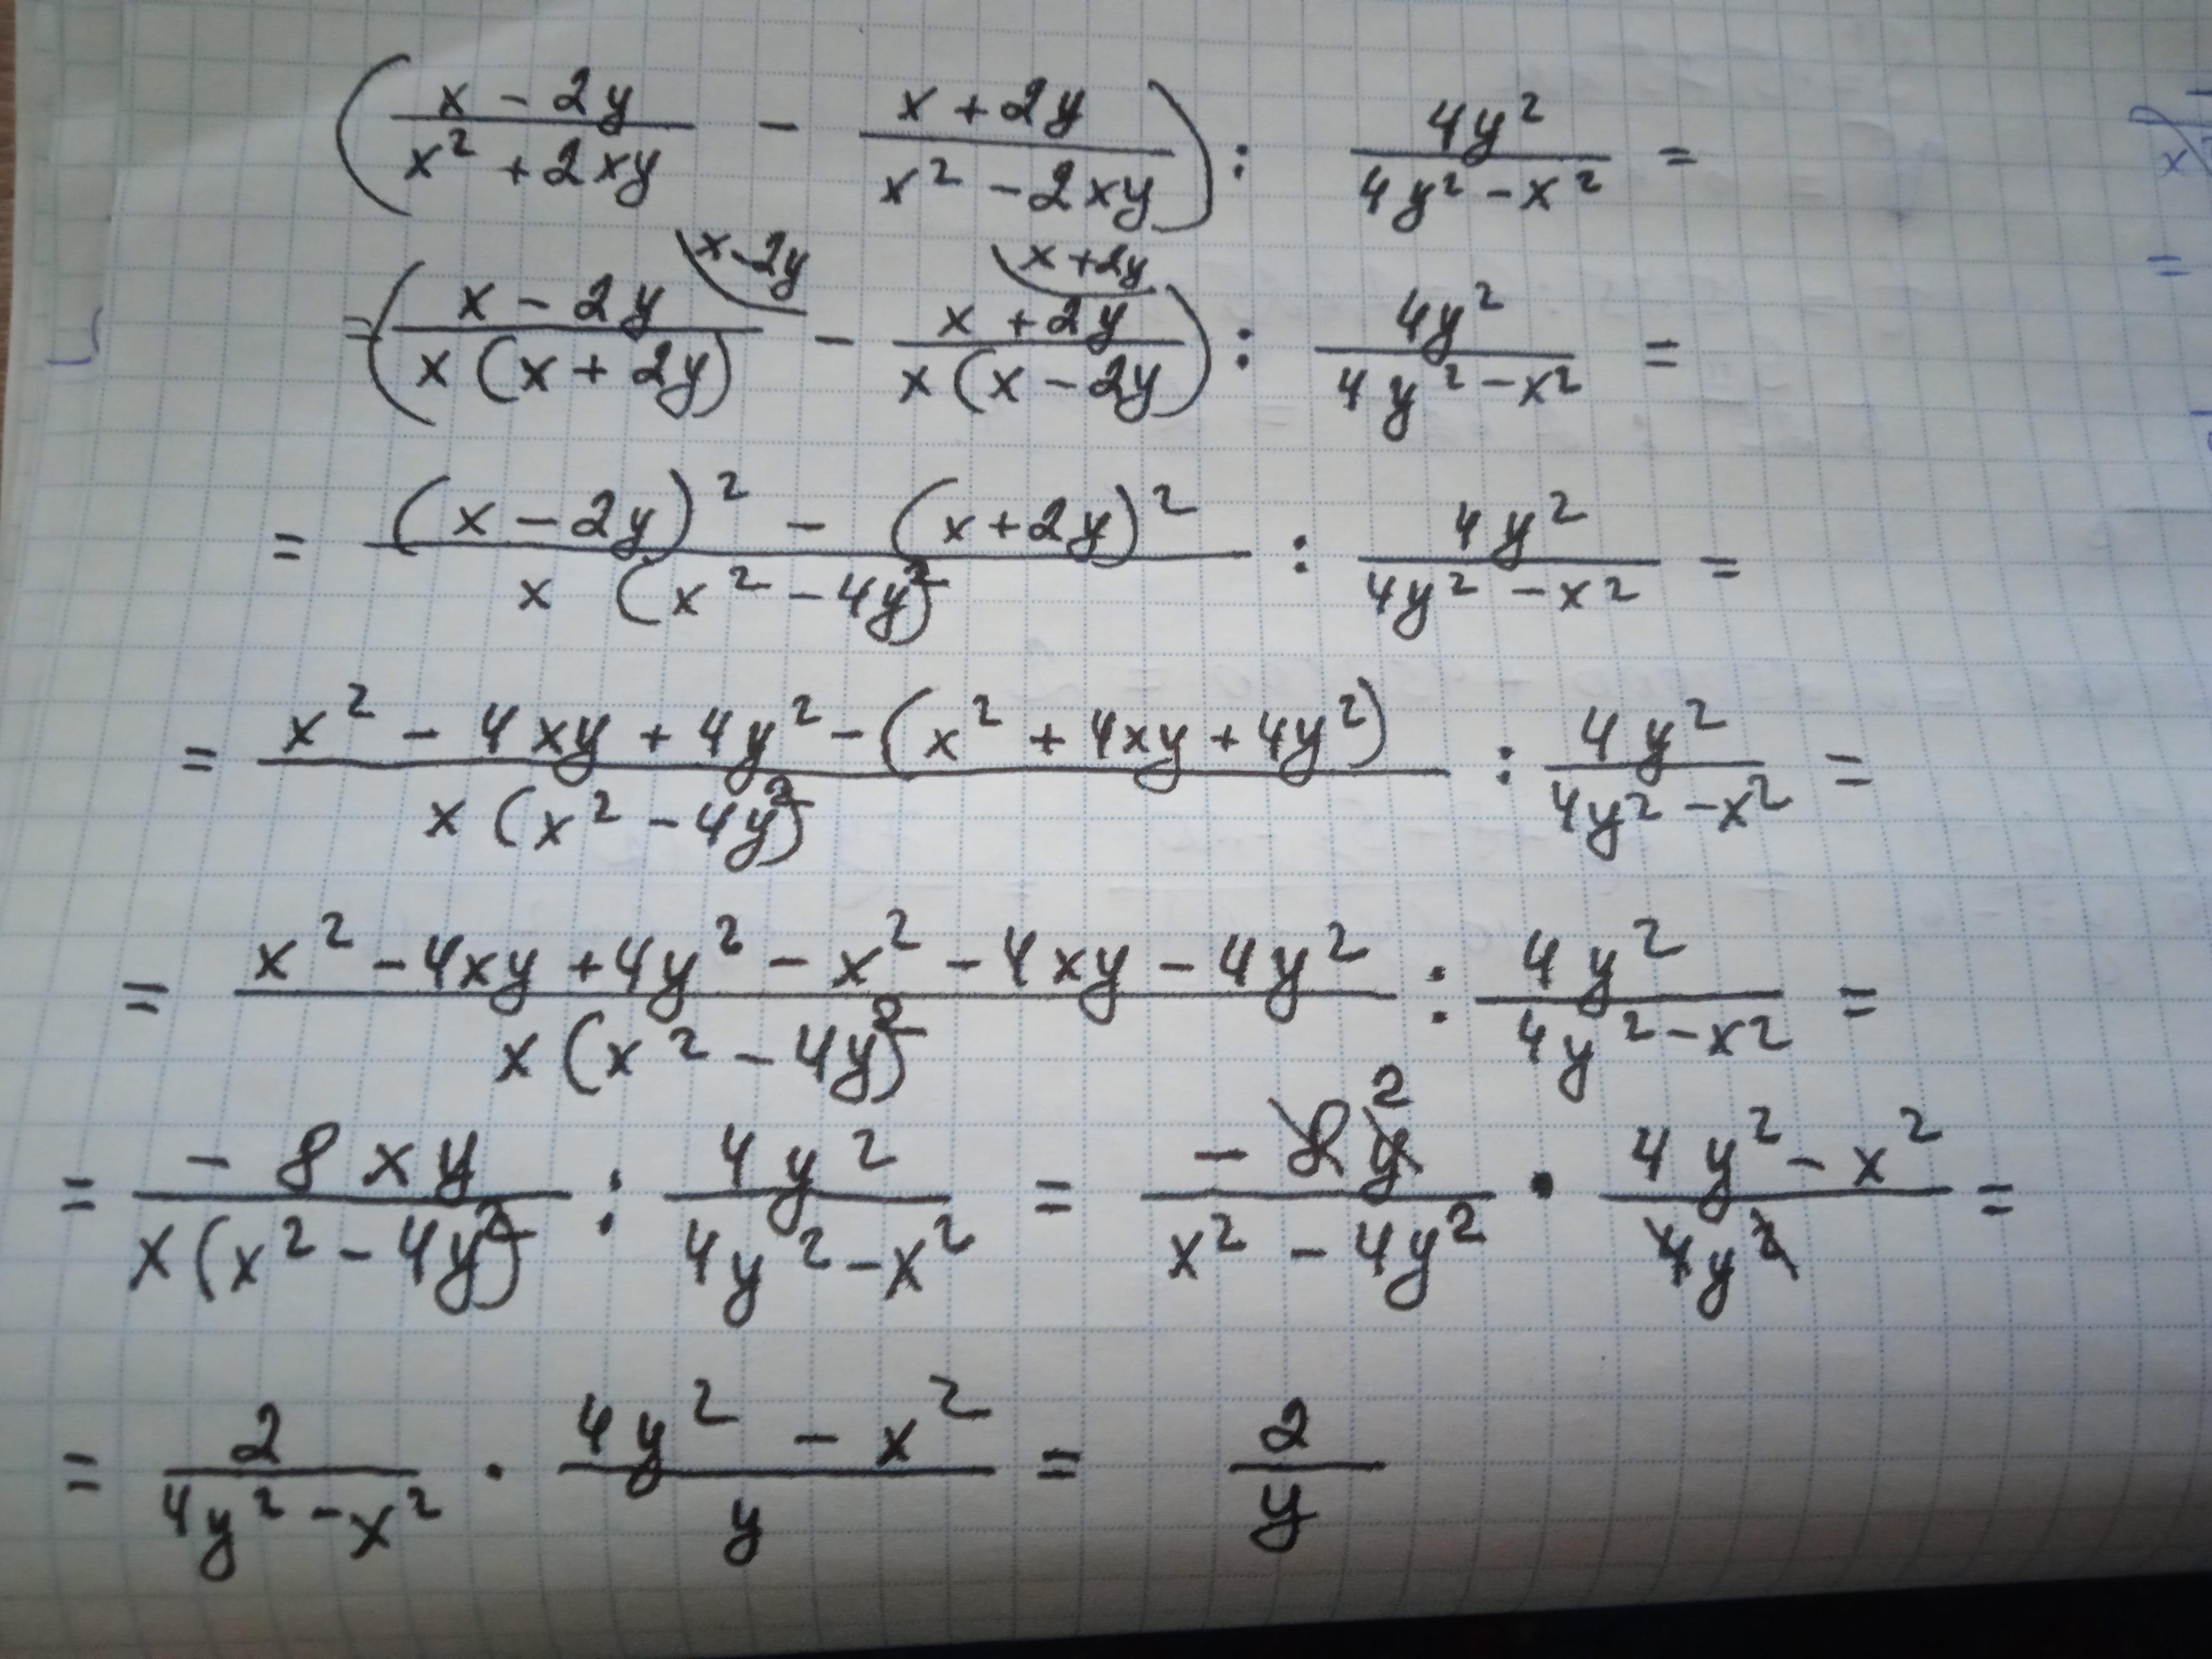 (x - 2y / x² + 2xy - x + 2y / x² - 2xy) : 4y² / 4y² - x² =
= (x - 2y \x-2y / x(x + 2y) - x + 2y \x+2y / x(x - 2y)) : 4y² / 4y² - x² =
= (x - 2y)² - (x + 2y)² / x (x² - 4y²) : 4y² / 4y² - x² =
= x² - 4xy + 4y² - (x² + 4xy + 4y²) / x(x² - 4y²) : 4y² / 4y² - x² =
= x² - 4xy + 4y² - x² - 4xy - 4y² / x(x² - 4y²) : 4y² / 4y² - x² =
= - 8xy / x(x² - 4y²) : 4y² / 4y² - x² = - 8y 2 / x² - 4y² · 4y² - x² / 4y² =
= 2 / 4y² - x² · 4y² - x² / y = 2 / y